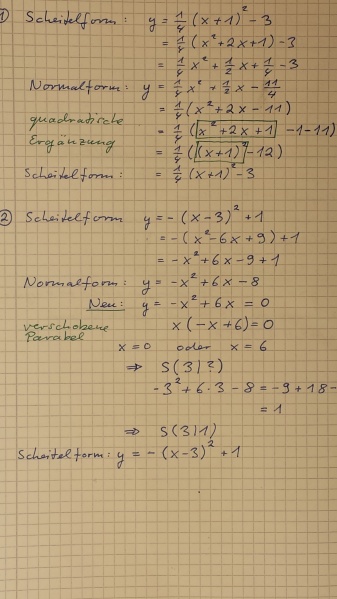 1) Scheitelform: y = 1/4 (x+1)² - 3
= 1/4 (x²+2x+1) - 3
= 1/4 x² + 1/2 x + 1/4 - 3
Normalform: y = 1/4 x² + 1/2 x - 11/4
= 1/4 (x² + 2x - 11)
quadratische = 1/4 (x² + 2x + 1 - 1 - 11)
Ergänzung = 1/4 ((x+1)² - 12)
Scheitelform: = 1/4 (x+1)² - 3
2) Scheitelform y = - (x-3)² + 1
= - (x² - 6x + 9) + 1
= - x² + 6x - 9 + 1
Normalform: y = - x² + 6x - 8
Neu: y = - x² + 6x = 0
verschobene x (-x + 6) = 0
Parabel
x = 0 oder x = 6
⇒ S(3|?)
-3² + 6 · 3 - 8 = -9 + 18 -
= 1
⇒ S(3|1)
Scheitelform: y = - (x-3)² + 1